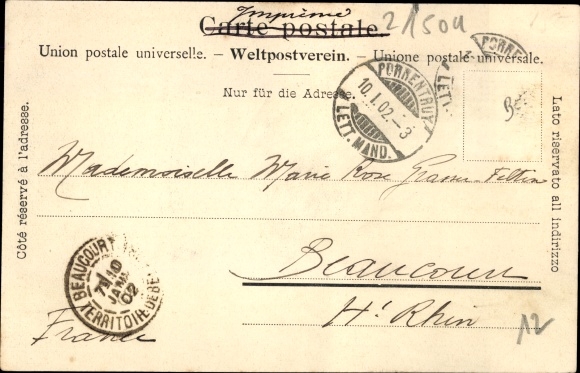 Imprimé
Carte postale.
21504
Union postale universelle. – Weltpostverein. – Unione postale universale.
Nur für die Adresse.
PORRENTRUY
10.I.02.–3
LETT. MAND.
PORREN
LETT.
Côté réservé à l'adresse.
Lato riservato all indirizzo
Mademoiselle Marie Rose
Beaucourt
Ht Rhin
France
BEAUCOURT
10
JANV
02
TERRITOIRE DE BE
12